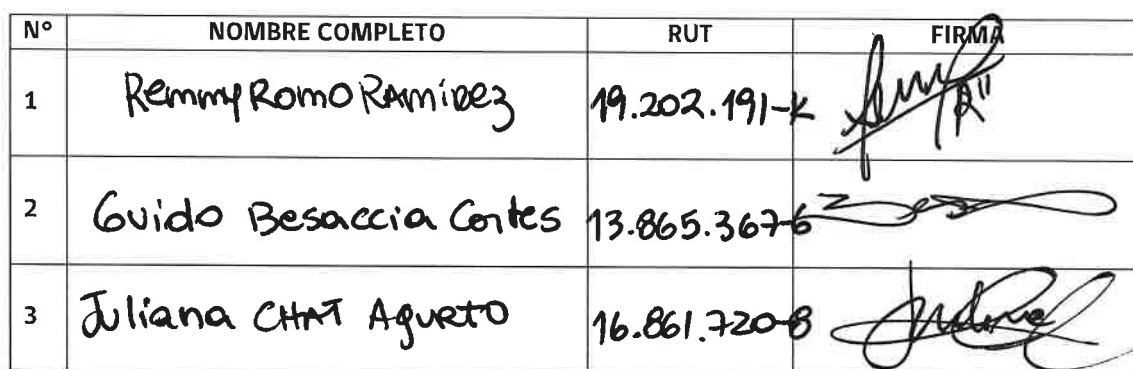 Nº NOMBRE COMPLETO RUT FIRMA
1 Remmy Romo Ramirez 19.202.191-K
2 Guido Besaccia Cortes 13.865.367-6
3 Juliana CHAT Agurto 16.861.720-8